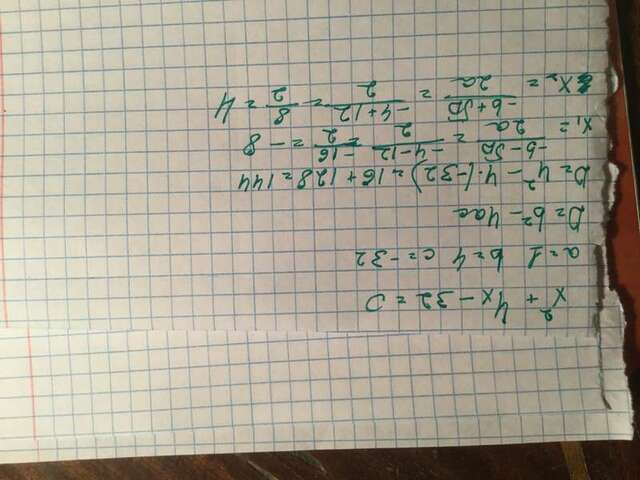 x² + 4x - 32 = 0
a = 1 b = 4 c = -32
D = b² - 4ac
D = 4² - 4·(-32) = 16 + 128 = 144
x₁ = (-b - √D)/2a = (-4 - 12)/2 = -16/2 = -8
x₂ = (-b + √D)/2a = (-4 + 12)/2 = 8/2 = 4